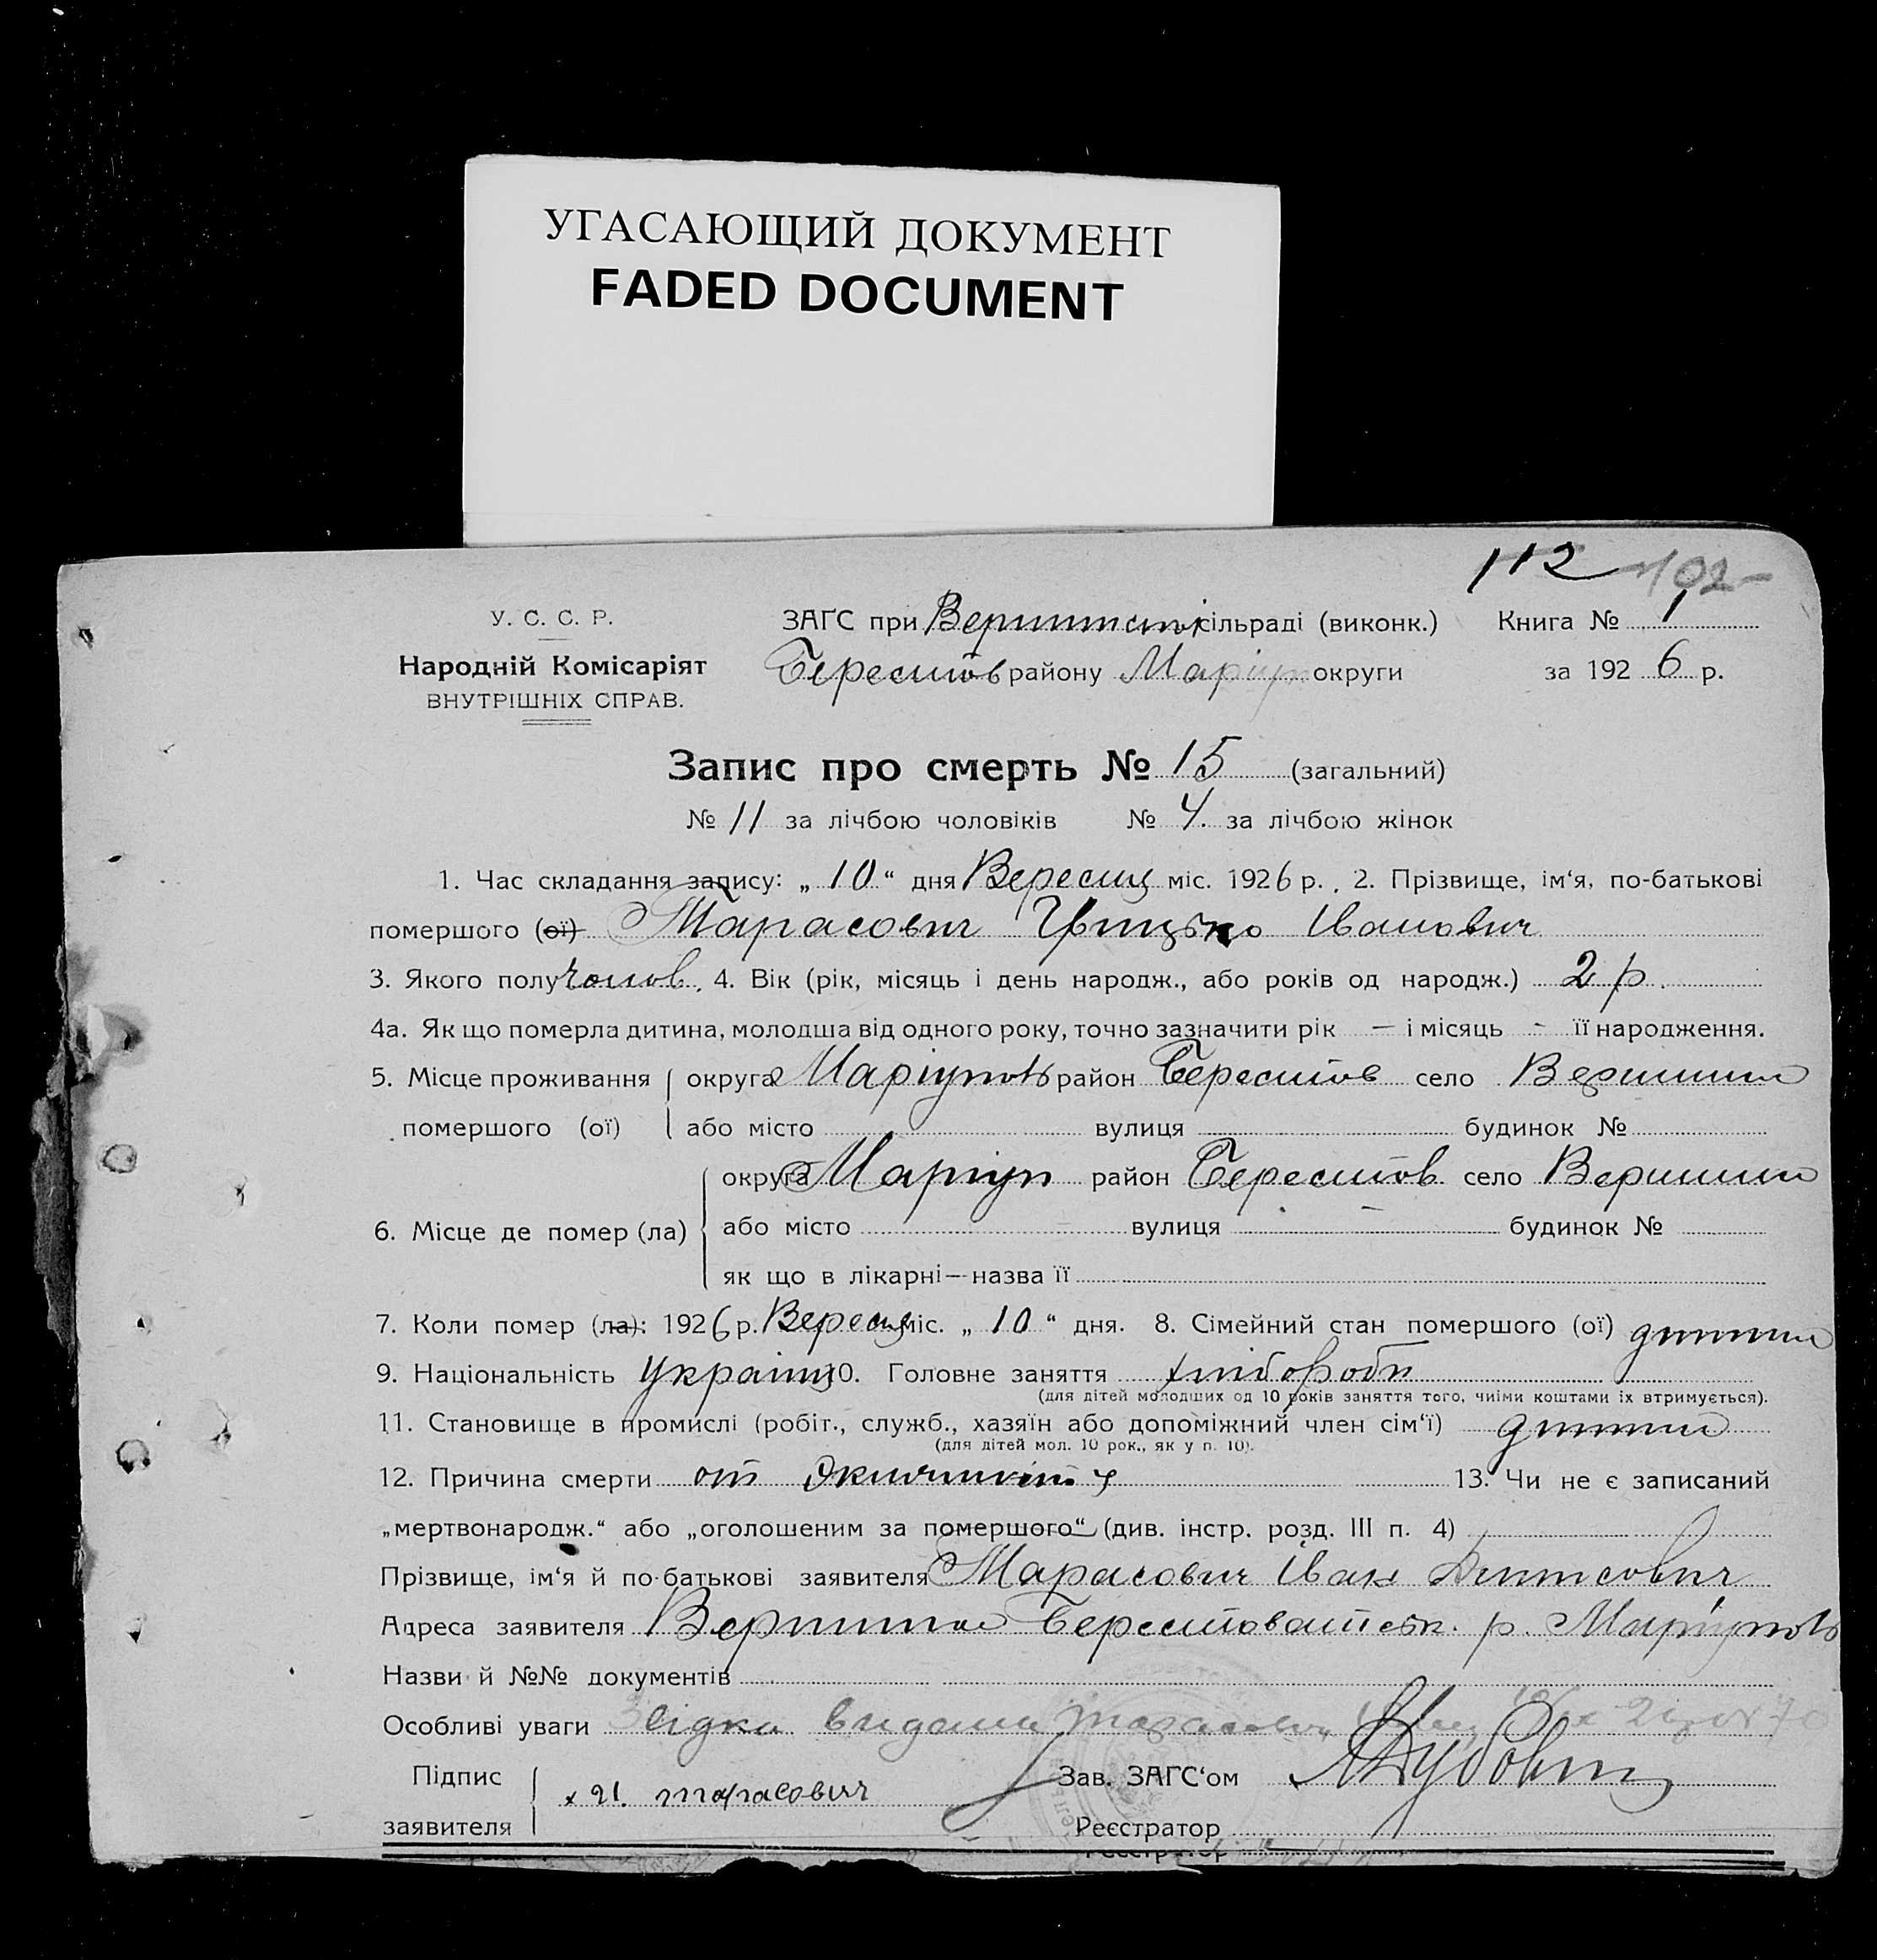 УГАСАЮЩИЙ ДОКУМЕНТ
FADED DOCUMENT
112 102
У. С. С. Р.
ЗАГС при сільраді (виконк.) Книга № 1
Народній Комісаріят
Берестов району Маріуп округи за 1926 р.
ВНУТРІШНІХ СПРАВ.
Запис про смерть № 15 (загальний)
№ 11 за лічбою чоловіків № 4. за лічбою жінок
1. Час складання запису: „ 10 “ дня Вересня міс. 1926 р. , 2. Прізвище, ім‘я, по-батькові
помершого (ої) Тарасович Грицько Іванович
3. Якого полу чолов. 4. Вік (рік, місяць і день народж., або років од народж.) 2 р.
4а. Як що померла дитина, молодша від одного року, точно зазначити рік — і місяць - її народження.
5. Місце проживання округа Маріуполь район Берестов село Вершини
помершого (ої) або місто вулиця будинок №
округа Маріуп район Берестов село Вершини
6. Місце де помер (ла) або місто вулиця будинок №
як що в лікарні—назва її
7. Коли помер (ла): 1926 р. Вересня міс. „ 10 “ дня. 8. Сімейний стан помершого (ої) дитина
9. Національність Українц 10. Головне заняття хлібороби
(для дітей молодших од 10 років заняття того, чиїми коштами їх втримується).
11. Становище в промислі (робіт., служб., хазяїн або допоміжний член сім‘ї) дитина
(для дітей мол. 10 рок., як у п. 10).
12. Причина смерти от 13. Чи не є записаний
„мертвонародж.“ або „оголошеним за помершого“ (див. інстр. розд. III п. 4)
Прізвище, ім‘я й по-батькові заявителя Тарасович Іван
Адреса заявителя Вершина р. Маріуполь
Назви й №№ документів
Особливі уваги видана
Підпис
заявителя х 21. тарасович
Зав. ЗАГС‘ом
Реєстратор